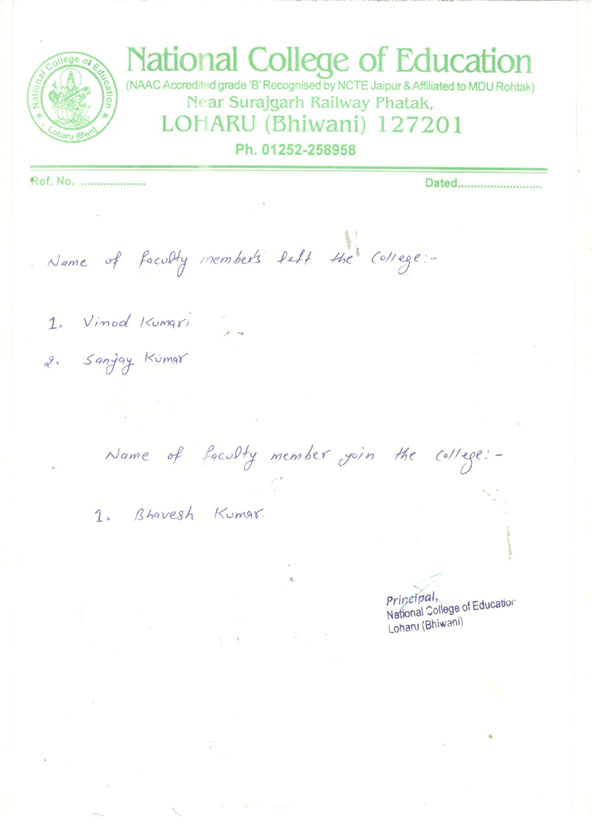 National College of Education
(NAAC Accredited grade 'B' Recognised by NCTE Jaipur & Affiliated to MDU Rohtak)
Near Surajgarh Railway Phatak,
LOHARU (Bhiwani) 127201
Ph. 01252-258958
National College of Education
Loharu (Bwn)
Ref. No. ....................
Dated..........................
Name of faculty member's left the College:-
1. Vinod Kumari
2. Sanjay Kumar
Name of faculty member join the College:-
1. Bhavesh Kumar.
Principal,
National College of Education
Loharu (Bhiwani)